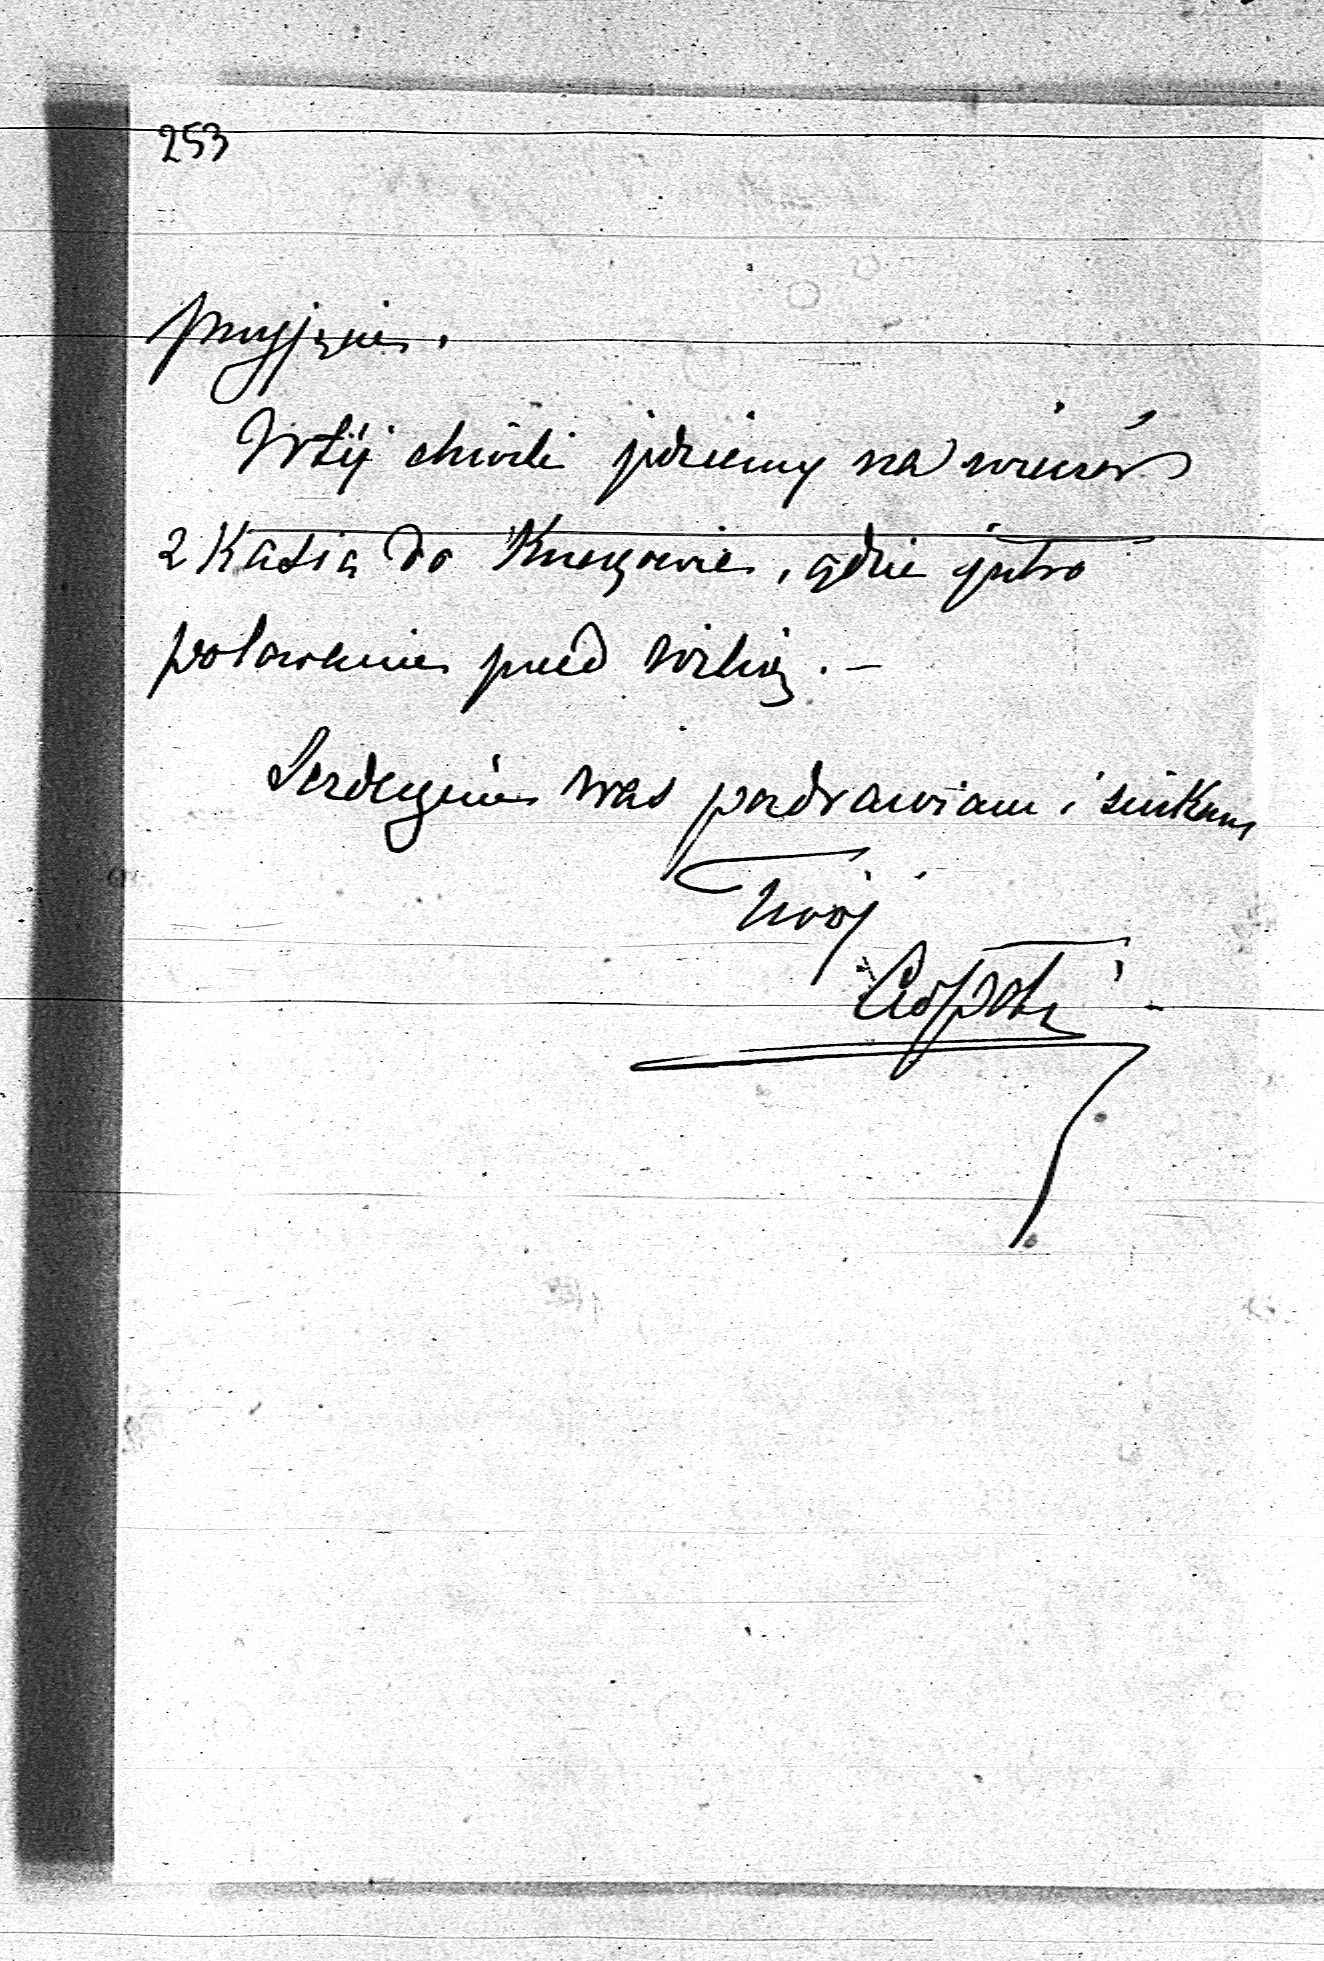 253
przyjęcie.
W téj chwili jedziemy na wieczór
z Kasią do Krzeszowic, gdzie jutro
polowanie przed wiliją. –
Serdecznie was pozdrawiam i ściskam
Twój